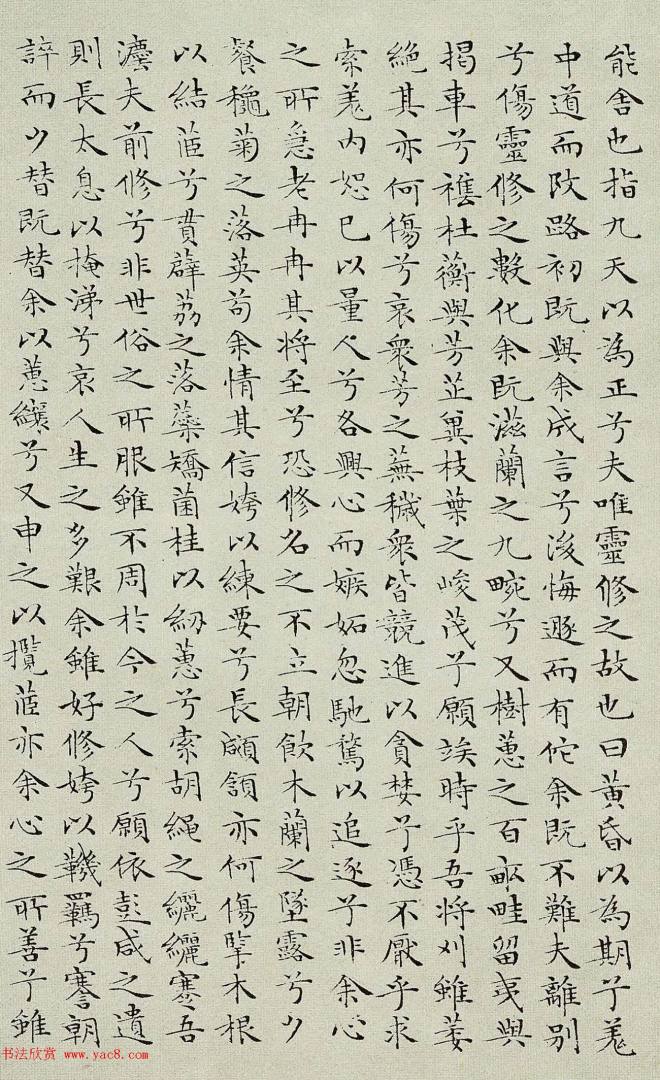 能舍也指九天以為正兮夫唯靈修之故也曰黃昏以為期兮羌
中道而改路初既與余成言兮後悔遯而有佗余既不難夫離別
兮傷靈修之數化余既滋蘭之九畹兮又樹蕙之百畝畦留夷與
揭車兮襍杜蘅與芳芷冀枝葉之峻茂兮願竢時乎吾將刈雖萎
絕其亦何傷兮哀衆芳之蕪穢衆皆競進以貪婪兮憑不厭乎求
索羌內恕己以量人兮各興心而嫉妬忽馳騖以追逐兮非余心
之所急老冉冉其將至兮恐修名之不立朝飲木蘭之墜露兮夕
餐穐菊之落英苟余情其信姱以練要兮長顑頷亦何傷擥木根
以結茝兮貫薜荔之落蘂矯菌桂以紉蕙兮索胡繩之纚纚謇吾
灋夫前修兮非世俗之所服雖不周於今之人兮願依彭咸之遺
則長太息以掩涕兮哀人生之多艱余雖好修姱以鞿羈兮謇朝
誶而夕替既替余以蕙纕兮又申之以攬茝亦余心之所善兮雖
书法欣赏 www.yac8.com